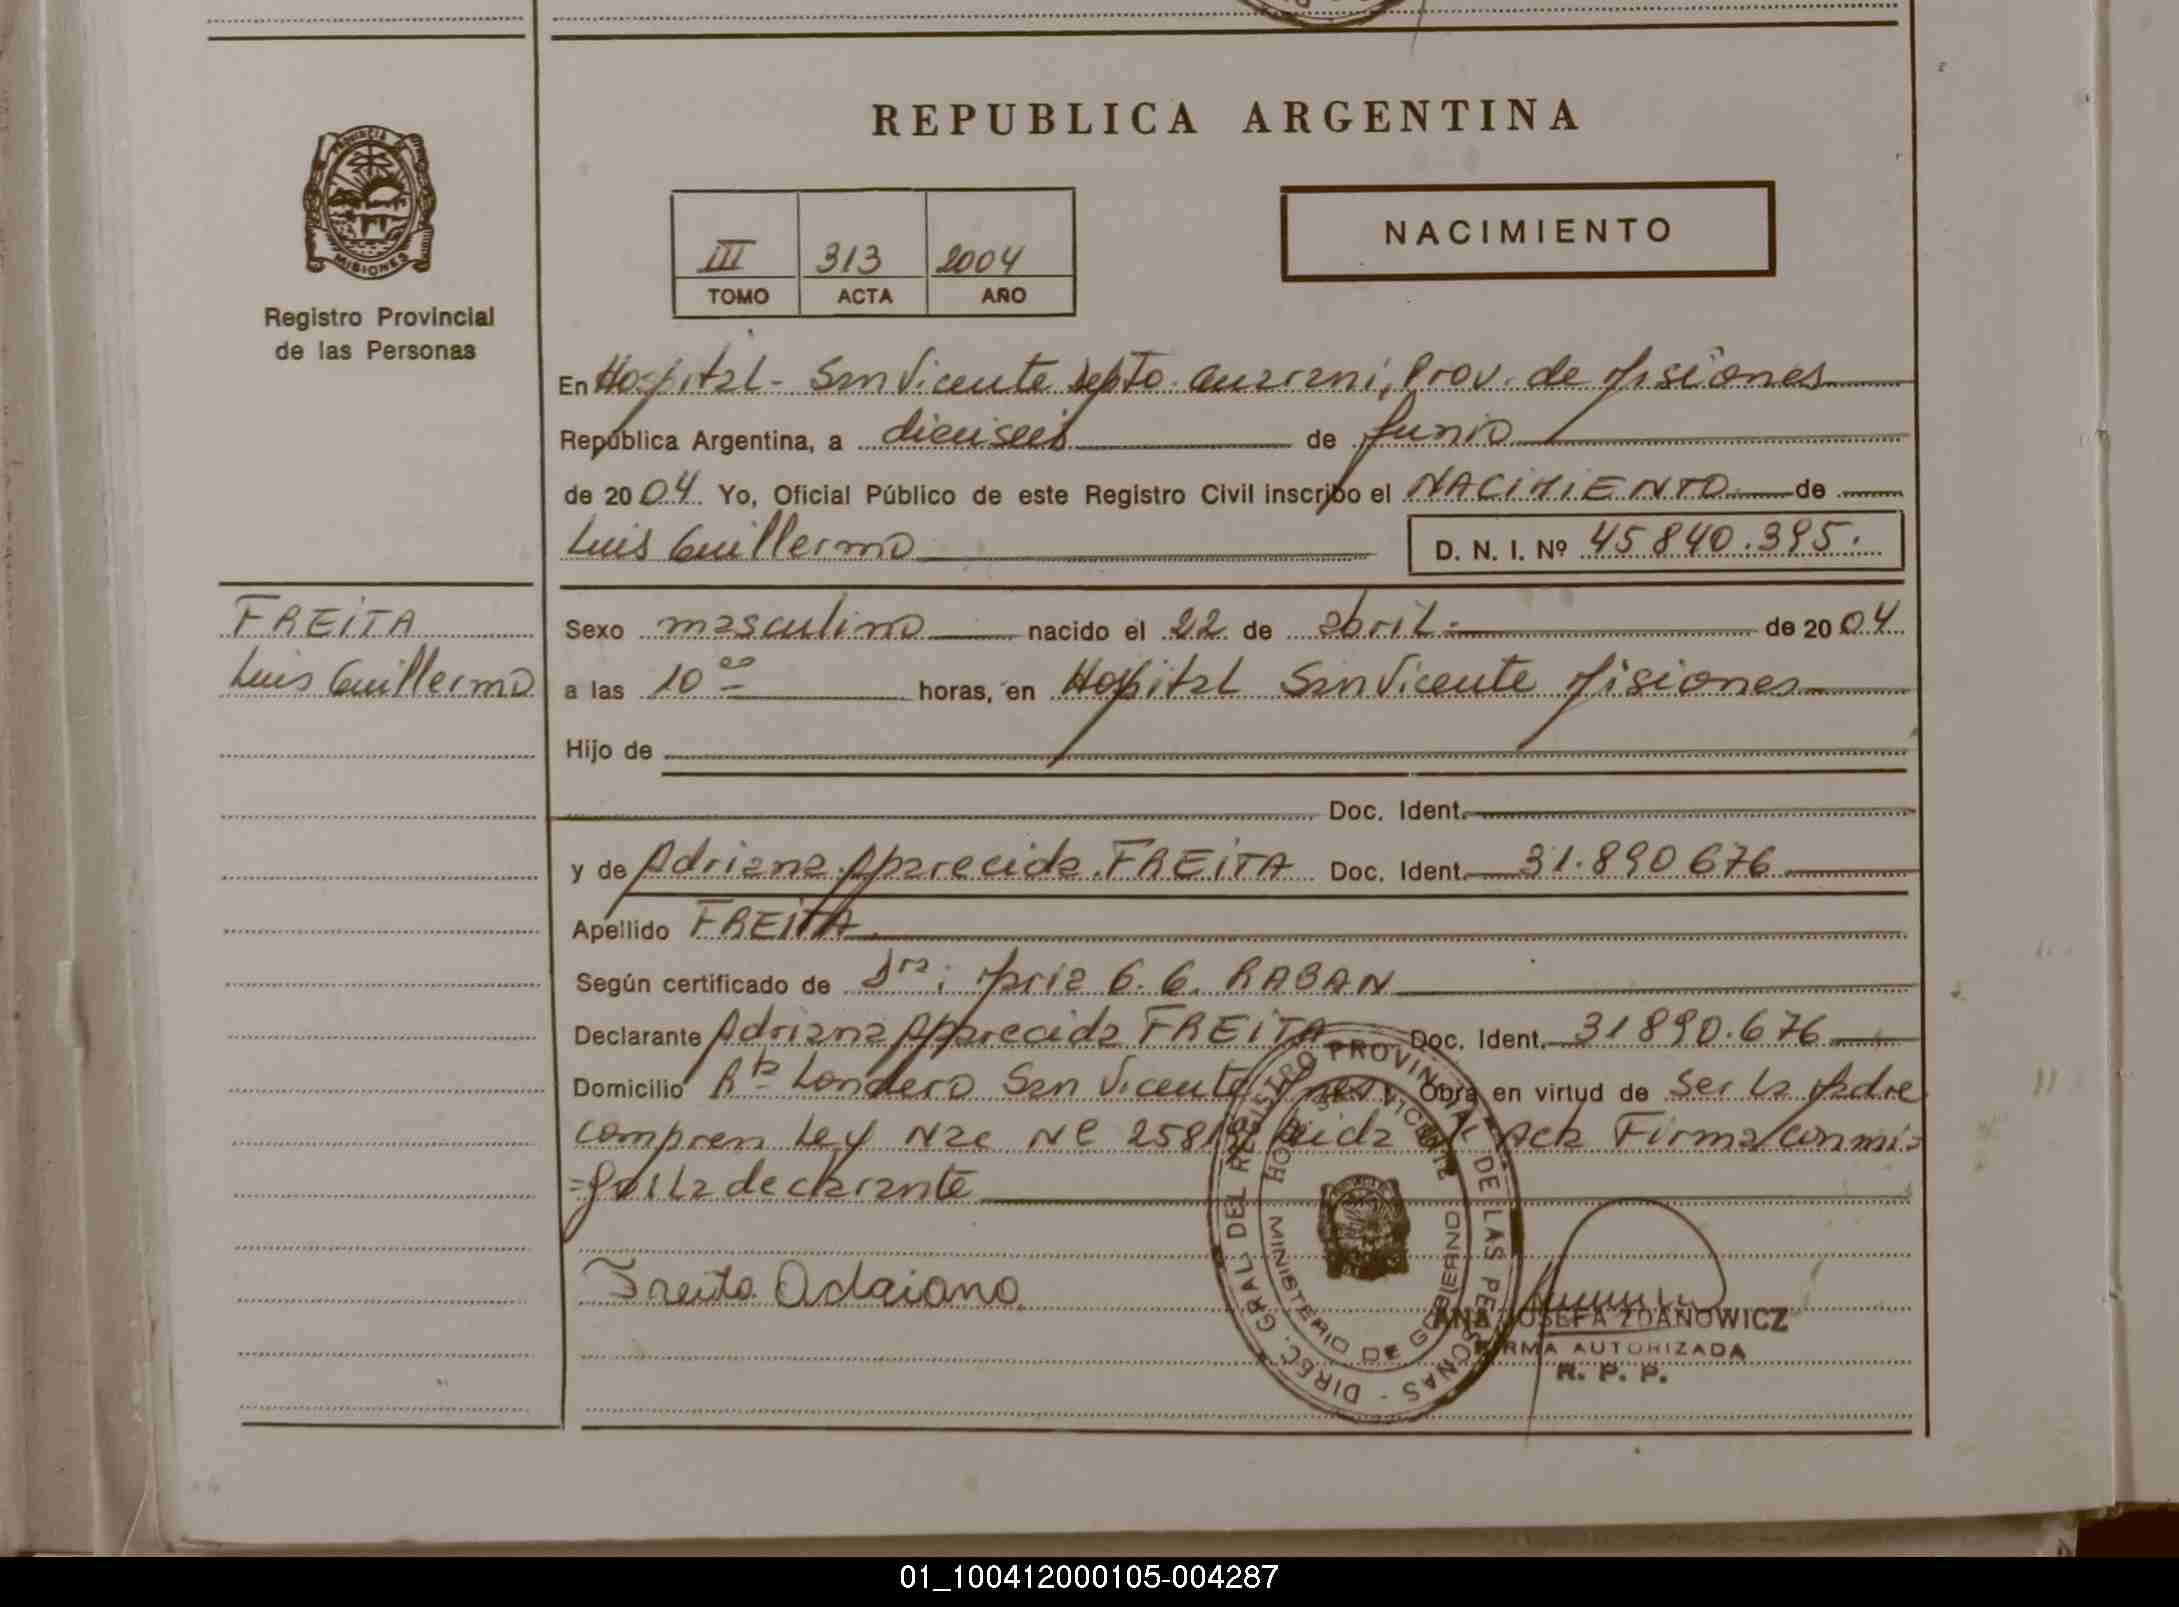 REPUBLICA ARGENTINA
PROVINCIA
MISIONES
Registro Provincial
de las Personas
III 313 2004
TOMO ACTA AÑO
NACIMIENTO
En Hospital - San Vicente Depto. Guarani, Prov. de Misiones
República Argentina, a dieciseis de Junio
de 2004. Yo, Oficial Público de este Registro Civil inscribo el NACIMIENTO de
Luis Guillermo D. N. I. Nº 45840.395.
FREITA
Luis Guillermo
Sexo masculino nacido el 22 de abril - de 2004
a las 10 00 horas, en Hospital San Vicente Misiones
Hijo de
Doc. Ident.
y de Adriana Aparecida FREITA Doc. Ident. 31.890676
Apellido FREITA.
Según certificado de Dra; Maria G. G. RABAN
Declarante Adriana Aparecida FREITA Doc. Ident. 31890.676
Domicilio Londero San Vicente Mnes. Obra en virtud de Ser la Madre
Ley Nac Nº Leida el Acta Firma conmi=
=go la declarante
Freita Adriana
DIREC. GRAL. DEL REGISTRO PROVINCIAL DE LAS PERSONAS -
HOSP. SAN VICENTE
MINISTERIO DE GOBIERNO
ANA JOSEFA ZDANOWICZ
FIRMA AUTORIZADA
R. P. P.
01_100412000105-004287